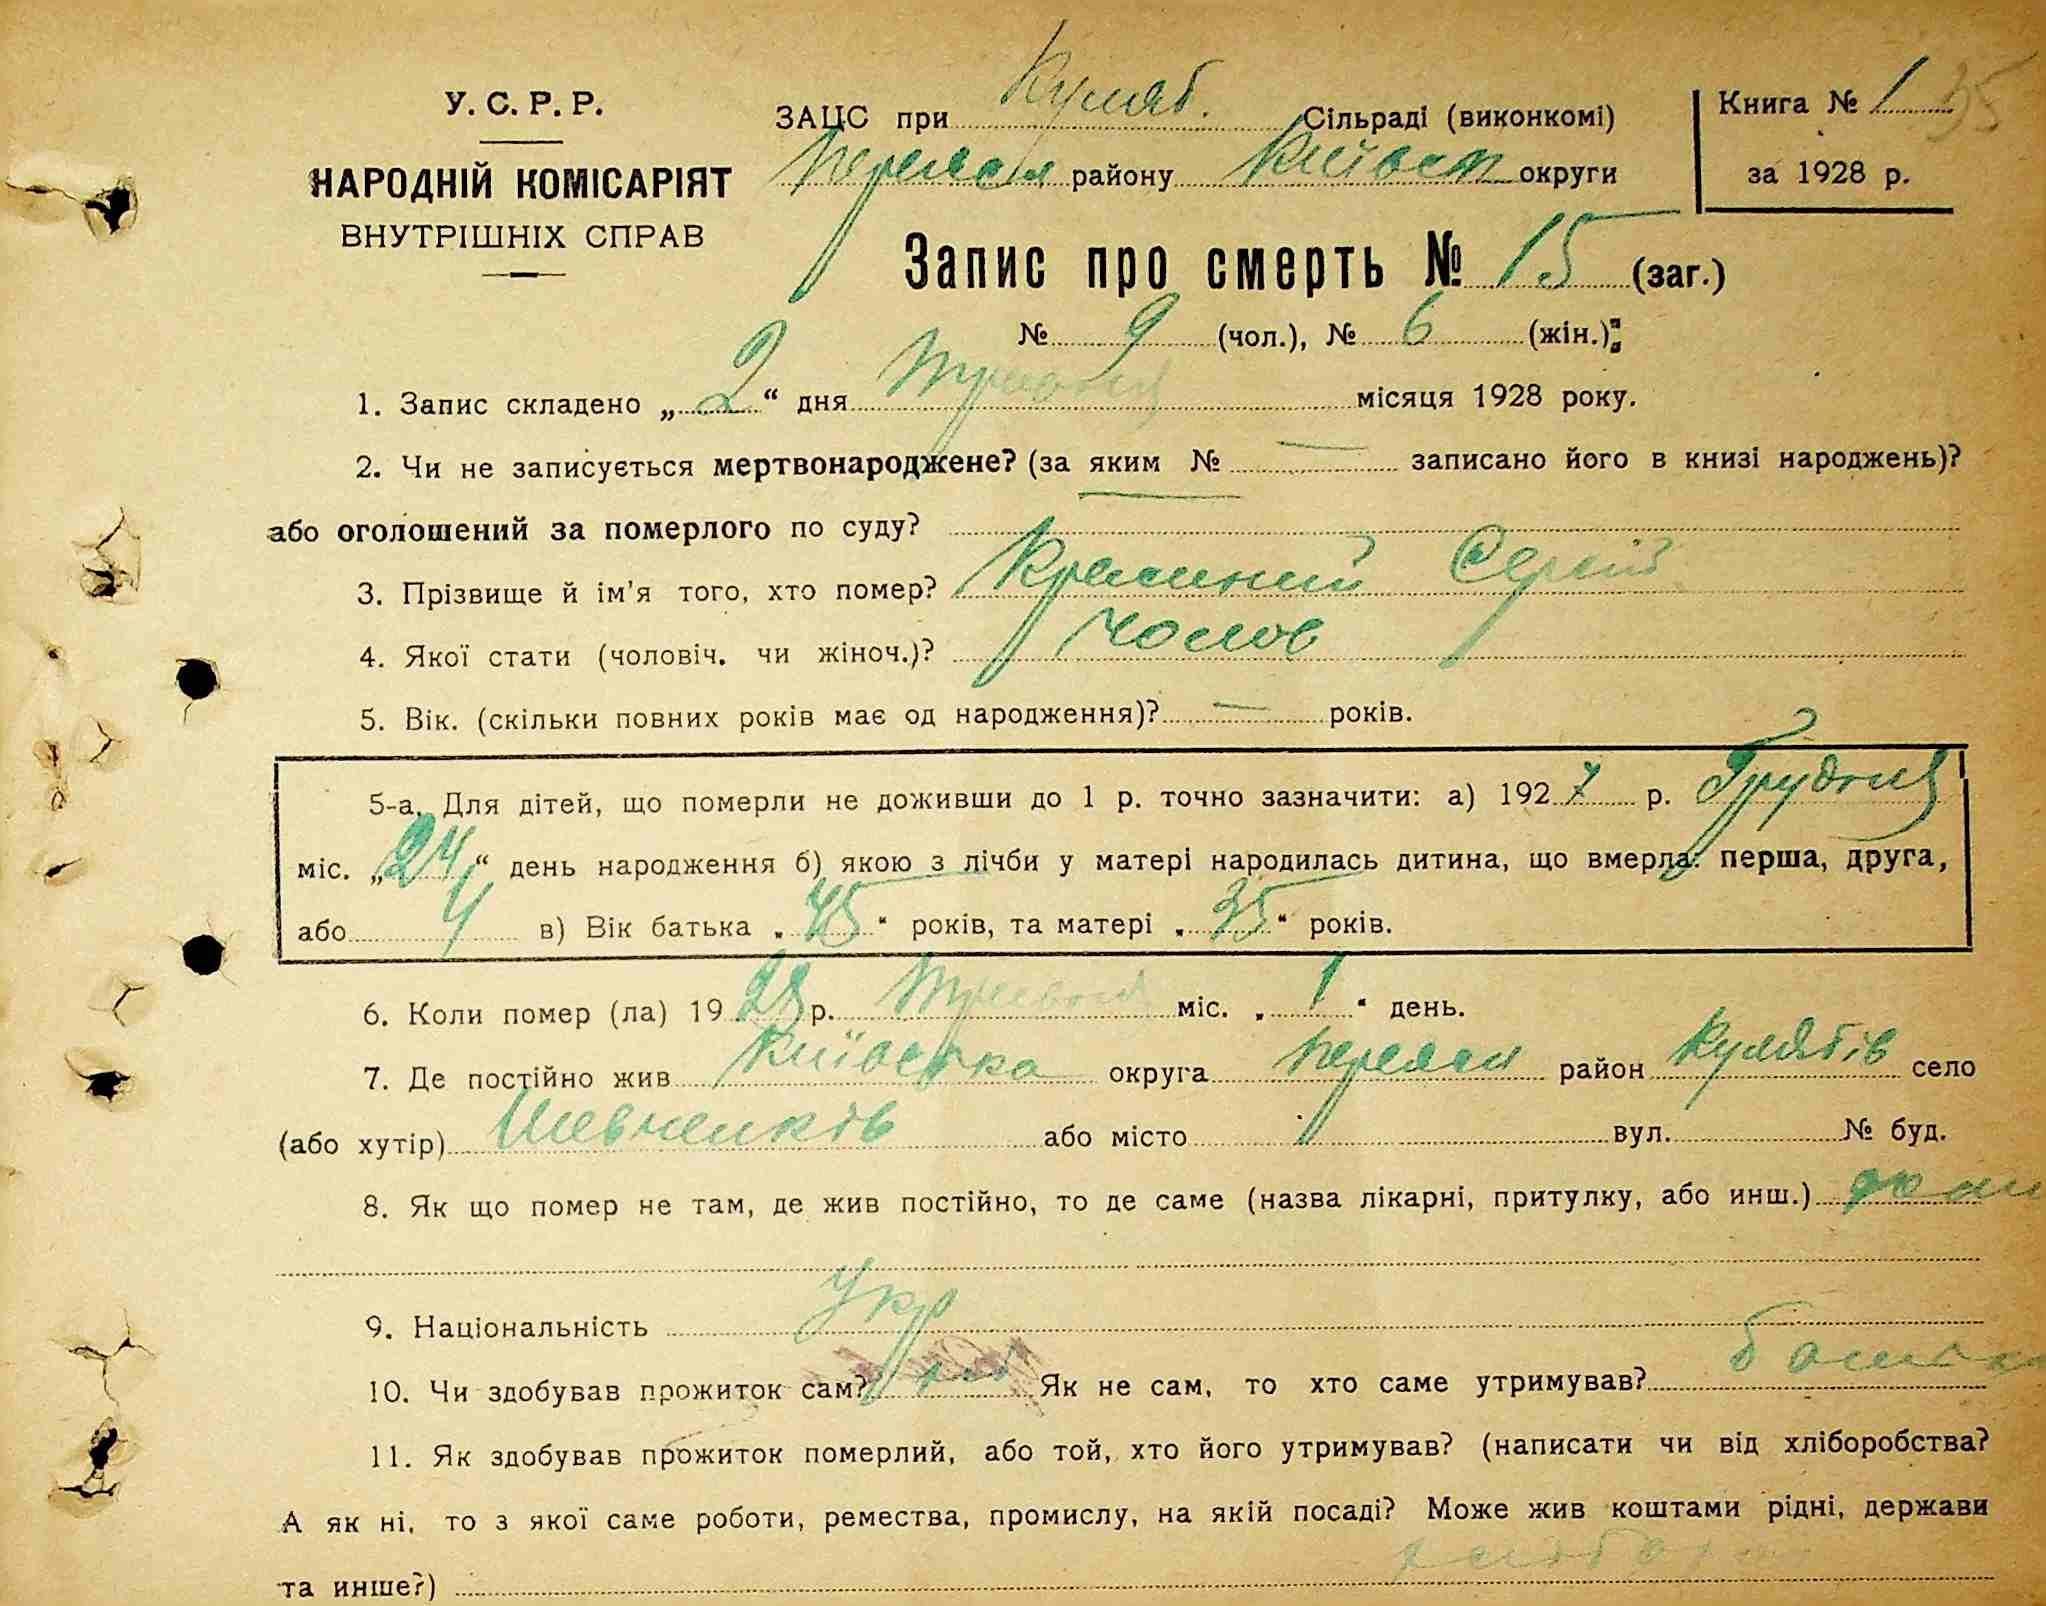 У. С. Р. Р.
НАРОДНІЙ КОМІСАРІЯТ
ВНУТРІШНІХ СПРАВ
ЗАЦС при Куляб. Сільраді (виконкомі)
Переясл району Київськ округи
Книга № 1
за 1928 р.
35
Запис про смерть № 15 (заг.)
№ 9 (чол.), № 6 (жін.);
1. Запис складено „2“ дня Травня місяця 1928 року.
2. Чи не записується мертвонароджене? (за яким № — записано його в книзі народжень)?
або оголошений за померлого по суду?
3. Прізвище й ім'я того, хто помер? Красиний Сергій
4. Якої стати (чоловіч. чи жіноч.)? Чолов
5. Вік. (скільки повних років має од народження)? — років.
5-а. Для дітей, що померли не доживши до 1 р. точно зазначити: а) 1927 р. Грудня
міс. „24“ день народження б) якою з лічби у матері народилась дитина, що вмерла: перша, друга,
або 4 в) Вік батька „45“ років, та матері „35“ років.
6. Коли помер (ла) 1928 р. Травня міс. „1“ день.
7. Де постійно жив Київська округа Переясл район Кулябів село
(або хутір) Шевченків або місто вул. № буд.
8. Як що помер не там, де жив постійно, то де саме (назва лікарні, притулку, або инш.)
9. Національність Укр
10. Чи здобував прожиток сам? ні Як не сам, то хто саме утримував? батько
11. Як здобував прожиток померлий, або той, хто його утримував? (написати чи від хліборобства?
А як ні, то з якої саме роботи, ремества, промислу, на якій посаді? Може жив коштами рідні, держави
та инше?) хлібороб